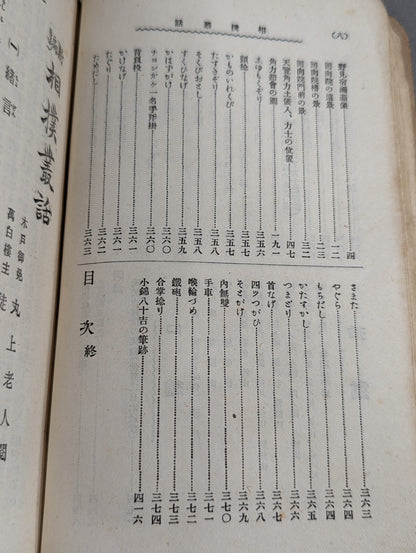 相撲叢話
野見宿禰畫像……四
回向院の遠景……一二
回向院櫓の景……二三
回向院門前の景……三二
天覽角力土俵入、力士の位置……四七
角力節會の圖……一九一
しゆもくぞり……三五六
頭捻……三五七
かものいれくび……三五七
たすきぞり……三五八
そくびおとし……三五八
すくひなげ……三五九
かはずがけ……三五九
チヨンガケ 一名手斧掛……三六〇
背負投……三六〇
かけなげ……三六一
たぐり……三六一
ためだし……三六三
さまた……三六三
やぐら……三六四
もちだし……三六四
かたすかし……三六五
つまどり……三六六
首なげ……三六七
四ツつがひ……三六八
そとかけ……三六九
内無雙……三七〇
手車……三七一
喉輪づめ……三七二
鐵砲……三七三
合掌捻り……三七四
小錦八十吉の筆跡……四一六
目次終
相撲叢話
木戸御免 丸上老人閲
一緒言